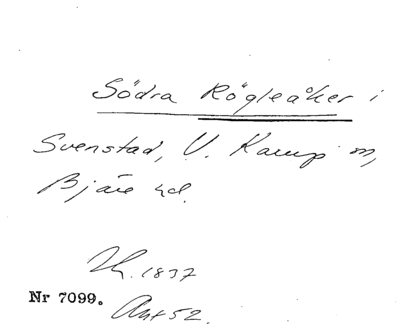 Södra Rögleåker i
Svenstad, V. Karup sn,
Bjäre hd.
Th. 1837
Nr 7099.
Ant 52.